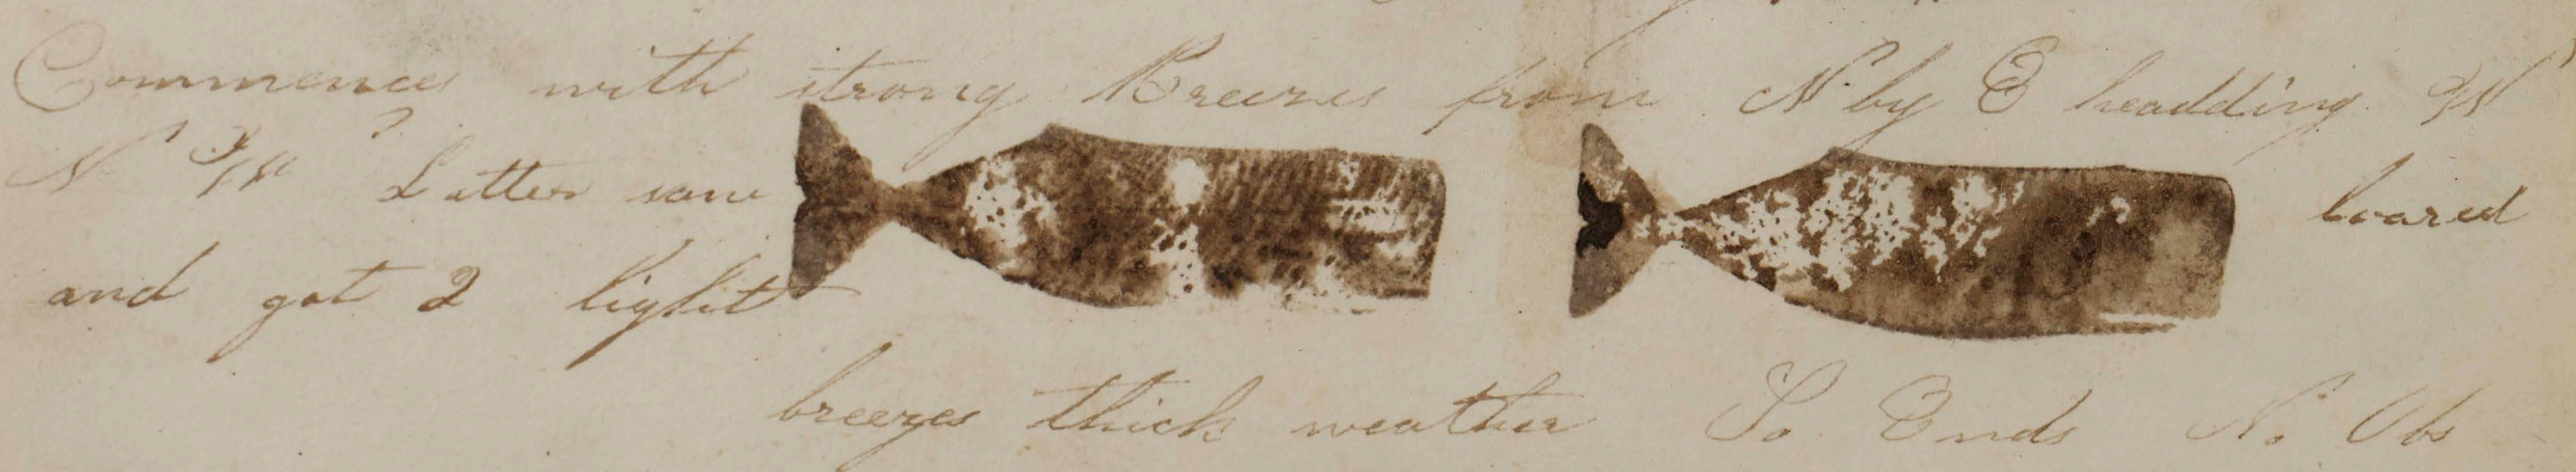 Commences with strong Breezes from N by E headding W
N W Latter saw loared
and got 2 light
breezes thick weather So Ends No Obs